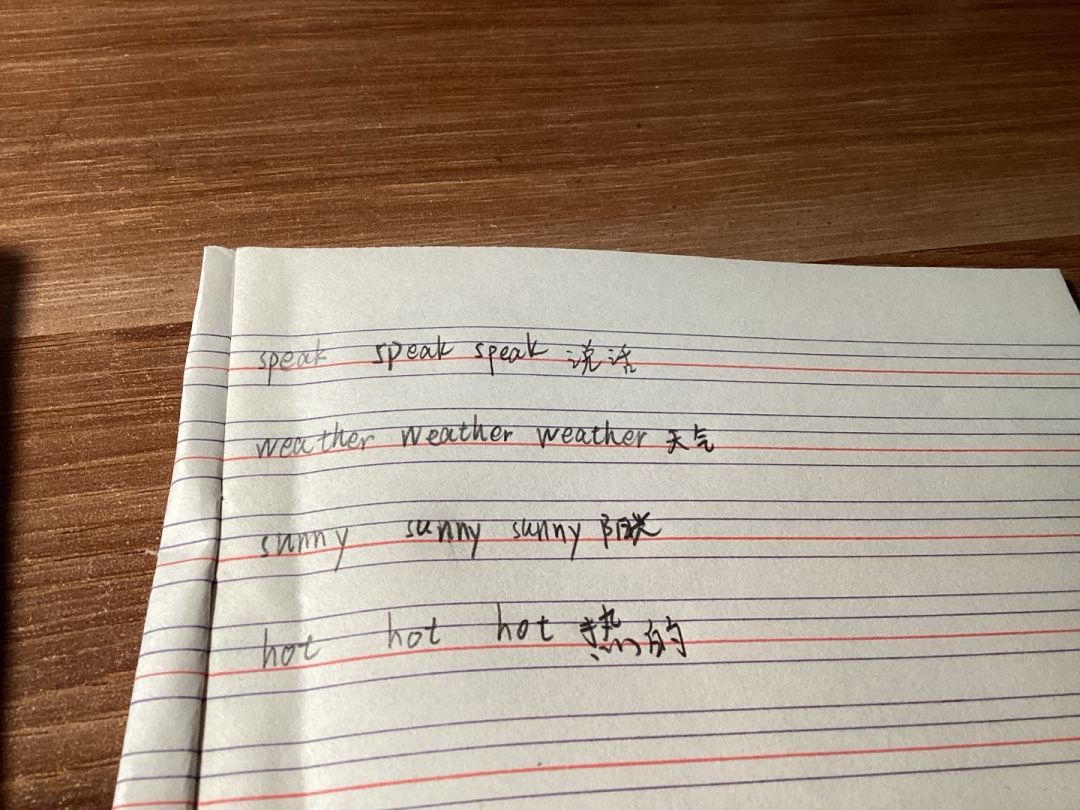 speak speak speak 说话
weather weather weather 天气
sunny sunny sunny 阳光
hot hot hot 热的